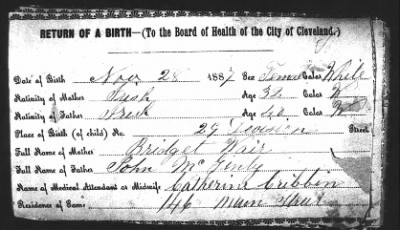 RETURN OF A BIRTH—(To the Board of Health of the City of Cleveland.)
Date of Birth Nov 28 1887 Sex Female Color White
Nativity of Mother Irish Age 32 Color W
Nativity of Father Irish Age 40 Color W
Place of Birth (of child) No. 29 Division Street
Full Name of Mother Bridget Wair
Full Name of Father John McGinty
Name of Medical Attendant or Midwife Catherine Cribbin
Residence of Same 146 Main Street